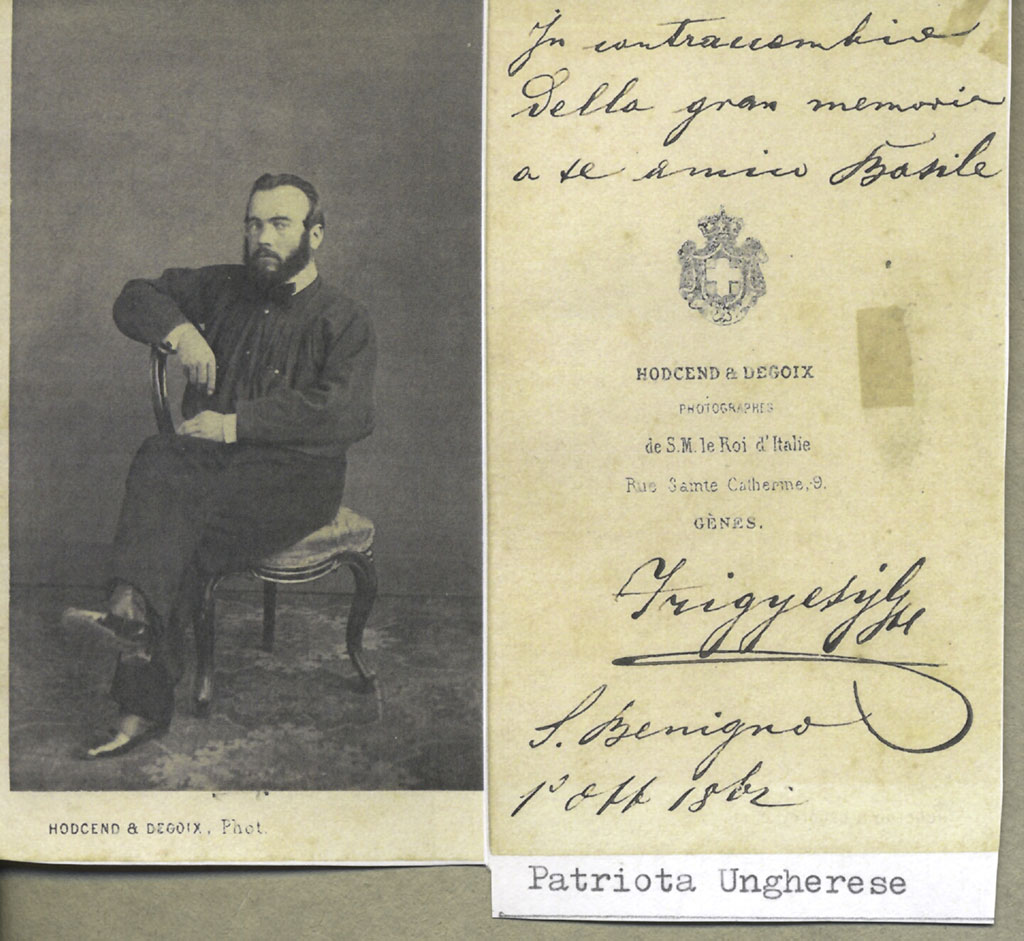 HODCEND & DEGOIX, Phot.
In contraccambio
Della gran memoria
a te amico Basile
HODCEND & DEGOIX
PHOTOGRAPHES
de S.M. le Roi d'Italie
Rue Sainte Catherine, 9.
GÈNES.
S. Benigno
1º Ott 1862.
Patriota Ungherese